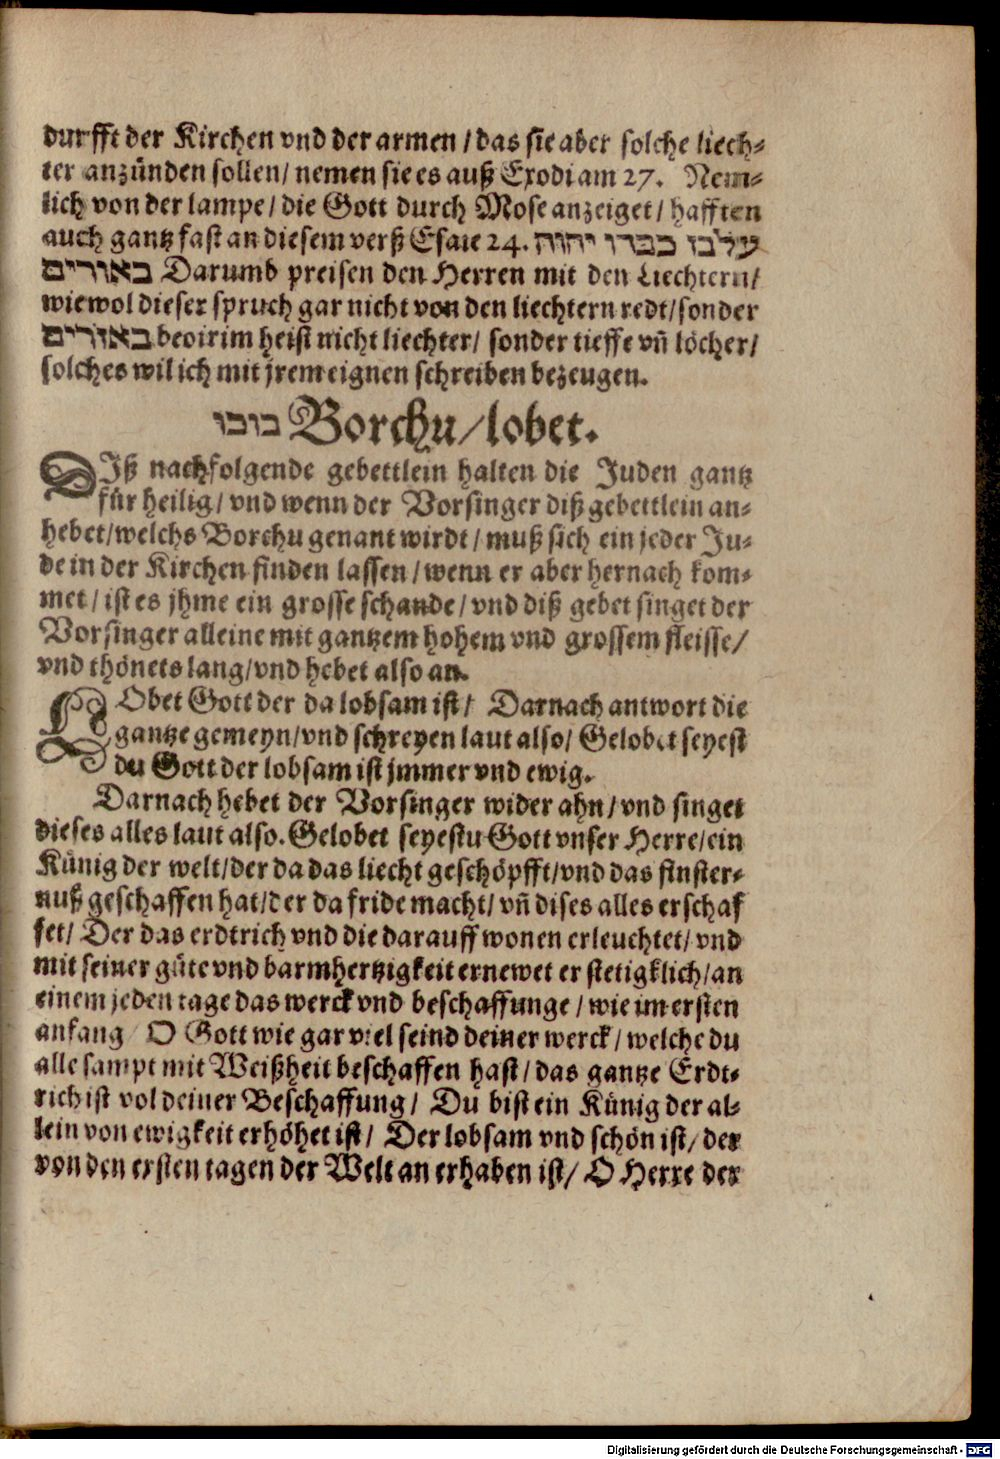 durfft der Kirchen vnd der armen / das sie aber solche liech-
ter anzünden sollen / nemen sie es auß Exodi am 27. Nem-
lich von der lampe / die Gott durch Mose anzeiget / hafften
auch gantz fast an diesem verß Esaie 24. עלבו כברו יהוה
באורים Darumb preisen den Herren mit den Liechtern /
wiewol dieser spruch gar nicht von den liechtern redt / sonder
באורים beoirim heist nicht liechter / sonder tieffe vñ löcher /
solches wil ich mit jrem eignen schreiben bezeugen.
בובו Borchu / lobet.
DIß nachfolgende gebettlein halten die Juden gantz
für heilig / vnd wenn der Vorsinger diß gebettlein an-
hebet / welchs Borchu genant wirdt / muß sich ein jeder Ju-
de in der Kirchen finden lassen / wenn er aber hernach kom-
met / ist es jhme ein grosse schande / vnd diß gebet singet der
Vorsinger alleine mit gantzem hohem vnd grossem fleisse /
vnd thönets lang / vnd hebet also an.
LObet Gott der da lobsam ist / Darnach antwort die
gantze gemeyn / vnd schreyen laut also / Gelobet seyest
du Gott der lobsam ist jmmer vnd ewig.
Darnach hebet der Vorsinger wider ahn / vnd singet
dieses alles laut also. Gelobet seyestu Gott vnser Herre / ein
Künig der welt / der da das liecht geschöpfft / vnd das finster-
nuß geschaffen hat / der da fride macht / vñ dises alles erschaf
fet / Der das erdtrich vnd die darauff wonen erleuchtet / vnd
mit seiner güte vnd barmhertzigkeit ernewet er stetigklich / an
einem jeden tage das werck vnd beschaffunge / wie im ersten
anfang O Gott wie gar viel seind deiner werck / welche du
alle sampt mit Weißheit beschaffen hast / das gantze Erdt-
rich ist vol deiner Beschaffung / Du bist ein Künig der al-
lein von ewigkeit erhöhet ist / Der lobsam vnd schön ist / der
von den ersten tagen der Welt an erhaben ist / O Herre der
Digitalisierung gefördert durch die Deutsche Forschungsgemeinschaft - DFG